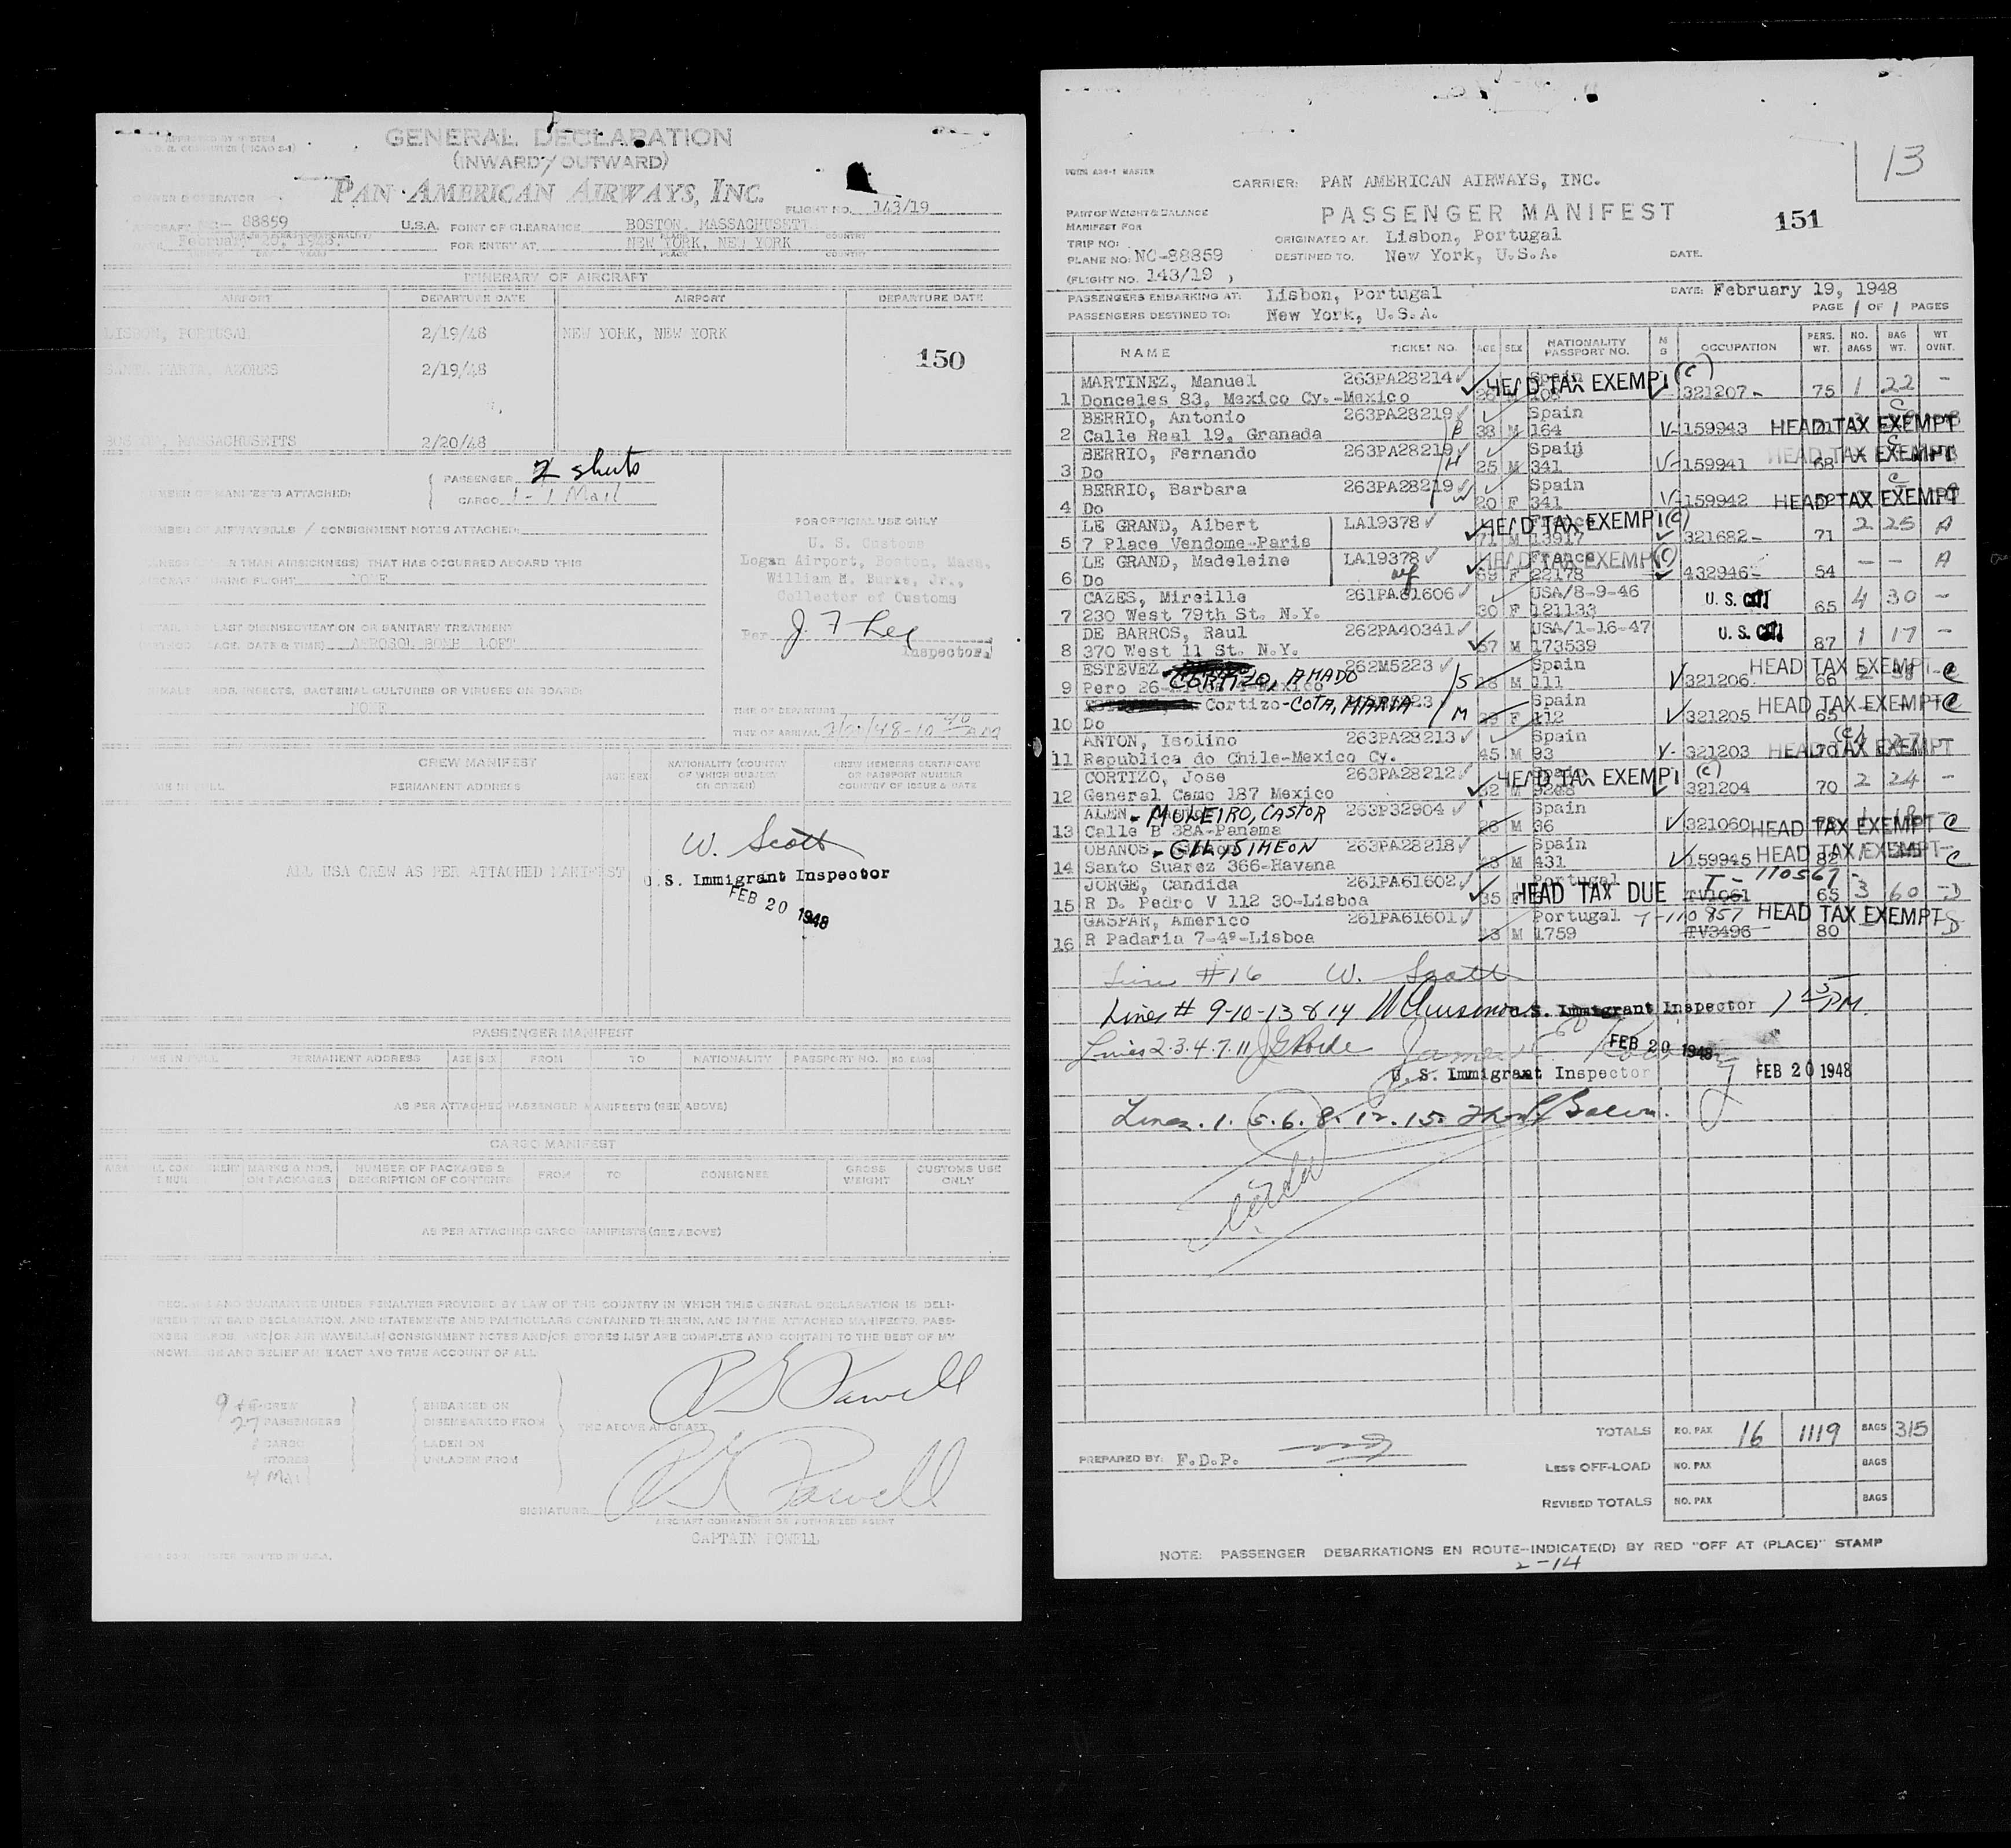 GENERAL DECLARATION
(INWARD/OUTWARD)
PAN AMERICAN AIRWAYS, INC.
FLIGHT NO. 143/19
88859
U.S.A. POINT OF CLEARANCE BOSTON, MASSACHUSETT
February 20, 1948.
FOR ENTRY AT NEW YORK, NEW YORK
PLACE COUNTRY
ITINERARY OF AIRCRAFT
AIRPORT DEPARTURE DATE AIRPORT DEPARTURE DATE
LISBON, PORTUGAL 2/19/48 NEW YORK, NEW YORK
150
SANTA MARIA, AZORES 2/19/48
BOSTON, MASSACHUSETTS 2/20/48
NUMBER OF MANIFESTS ATTACHED: PASSENGER 2 sheets
CARGO 1-1 Mail
NUMBER OF AIRWAYBILLS / CONSIGNMENT NOTES ATTACHED:
FOR OFFICIAL USE ONLY
U. S. Customs
Logan Airport, Boston, Mass.
William H. Burke, Jr.,
Collector of Customs
THAN AIRSICKNESS) THAT HAS OCCURRED ABOARD THIS
NONE
Per J. F. Leg
Inspector.
LAST DISINSECTIZATION OR SANITARY TREATMENT
AEROSOL BOMB LOFT
INSECTS, BACTERIAL CULTURES OR VIRUSES ON BOARD:
NONE
TIME OF DEPARTURE
TIME OF ARRIVAL
CREW MANIFEST
PERMANENT ADDRESS AGE SEX NATIONALITY (COUNTRY OF WHICH SUBJECT OR CITIZEN) CREW MEMBERS CERTIFICATE OR PASSPORT NUMBER COUNTRY OF ISSUE & DATE
W. Scott
ALL USA CREW AS PER ATTACHED MANIFEST
U.S. Immigrant Inspector
FEB 20 1948
PASSENGER MANIFEST
PERMANENT ADDRESS AGE SEX FROM TO NATIONALITY PASSPORT NO. NO. BAGS
AS PER ATTACHED PASSENGER MANIFESTS (SEE ABOVE)
CARGO MANIFEST
MARKS & NOS. ON PACKAGES NUMBER OF PACKAGES & DESCRIPTION OF CONTENTS FROM TO CONSIGNEE GROSS WEIGHT CUSTOMS USE ONLY
AS PER ATTACHED CARGO MANIFESTS (SEE ABOVE)
DECLARE AND GUARANTEE UNDER PENALTIES PROVIDED BY LAW OF THE COUNTRY IN WHICH THIS GENERAL DECLARATION IS DELI-
VERED THAT SAID DECLARATION, AND STATEMENTS AND PARTICULARS CONTAINED THEREIN, AND IN THE ATTACHED MANIFESTS, PASS-
ENGER CARDS, AND/OR AIR WAYBILLS/CONSIGNMENT NOTES AND/OR STORES LIST ARE COMPLETE AND CONTAIN TO THE BEST OF MY
KNOWLEDGE AND BELIEF AN EXACT AND TRUE ACCOUNT OF ALL
9 CREW
27 PASSENGERS
CARGO
STORES
4 Mail
EMBARKED ON
DISEMBARKED FROM
LADEN ON
UNLADEN FROM
THE ABOVE AIRCRAFT
SIGNATURE:
AIRCRAFT COMMANDER OR AUTHORIZED AGENT
CAPTAIN POWELL
13
CARRIER: PAN AMERICAN AIRWAYS, INC.
PASSENGER MANIFEST 151
PART OF WEIGHT & BALANCE
MANIFEST FOR
TRIP NO:
PLANE NO: NC-88859
(FLIGHT NO. 143/19 )
ORIGINATED AT. Lisbon, Portugal
DESTINED TO. New York, U.S.A. DATE.
PASSENGERS EMBARKING AT: Lisbon, Portugal DATE: February 19, 1948
PASSENGERS DESTINED TO: New York, U.S.A. PAGE 1 OF 1 PAGES
NAME TICKET NO. AGE SEX NATIONALITY PASSPORT NO. M S OCCUPATION PERS. WT. NO. BAGS BAG WT. WT OVNT.
MARTINEZ, Manuel 263PA28214 Spain HEAD TAX EXEMPT (C)
1 Donceles 83, Mexico Cy.-Mexico 321207 75 1 22 -
BERRIO, Antonio 263PA28219 Spain
2 Calle Real 19, Granada 38 M 164 V- 159943 HEAD TAX EXEMPT
BERRIO, Fernando 263PA28219 Spain
3 Do 25 M 341 V- 159941 68 HEAD TAX EXEMPT
BERRIO, Barbara 263PA28219 Spain
4 Do 20 F 341 V- 159942 HEAD TAX EXEMPT
LE GRAND, Albert LA19378 HEAD TAX EXEMPT (C)
5 7 Place Vendome-Paris 71 M 13917 321682- 71 2 25 A
LE GRAND, Madeleine LA19378 France HEAD TAX EXEMPT (C)
6 Do 69 F 22178 432946- 54 - - A
CAZES, Mireille 261PA61606 USA/8-9-46
7 230 West 79th St. N.Y. 30 F 121133 U. S. CIT 65 4 30 -
DE BARROS, Raul 262PA40341 USA/1-16-47
8 370 West 11 St. N.Y. 57 M 173539 U. S. CIT 87 1 17 -
ESTEVEZ CORTIZO, AMADO 262M5223 Spain HEAD TAX EXEMPT
9 Pero 26- Mexico S M 111 321206 66 C
Cortizo-COTA, MARIA Spain HEAD TAX EXEMPT
10 Do M F 112 321205 65 C
ANTON, Isolino 263PA28213 Spain
11 Republica do Chile-Mexico Cy. 45 M 93 V- 321203 70 HEAD TAX EXEMPT
CORTIZO, Jose 263PA28212 HEAD TAX EXEMPT (C)
12 General Camo 187 Mexico M 321204 70 2 24 -
ALEN- MULEIRO, CASTOR 263P32904 Spain
13 Calle B 38A-Panama M 36 321060 HEAD TAX EXEMPT C
OBANOS- GIL, SIMEON 263PA28218 Spain
14 Santo Suarez 366-Havana M 431 159945 82 HEAD TAX EXEMPT C
JORGE, Candida 261PA61602 Portugal T-110567
15 R D. Pedro V 112 30-Lisboa 35 F HEAD TAX DUE TV1061 65 3 60 -D
GASPAR, Americo 261PA61601 Portugal T-110857 HEAD TAX EXEMPT
16 R Padaria 7-4º-Lisboa M 1759 TV3496 80 D
Line #16 W. Scott
Lines # 9-10-13 & 14 U.S. Immigrant Inspector PM.
Lines 2.3.4.7.11
FEB 20 1948
U. S. Immigrant Inspector
FEB 20 1948
Lines. 1. 5. 6. 8. 12. 15.
TOTALS NO. PAX 16 1119 BAGS 315
PREPARED BY: F.D.P.
LESS OFF-LOAD NO. PAX BAGS
REVISED TOTALS NO. PAX BAGS
NOTE: PASSENGER DEBARKATIONS EN ROUTE-INDICATE(D) BY RED "OFF AT (PLACE)" STAMP
2-14